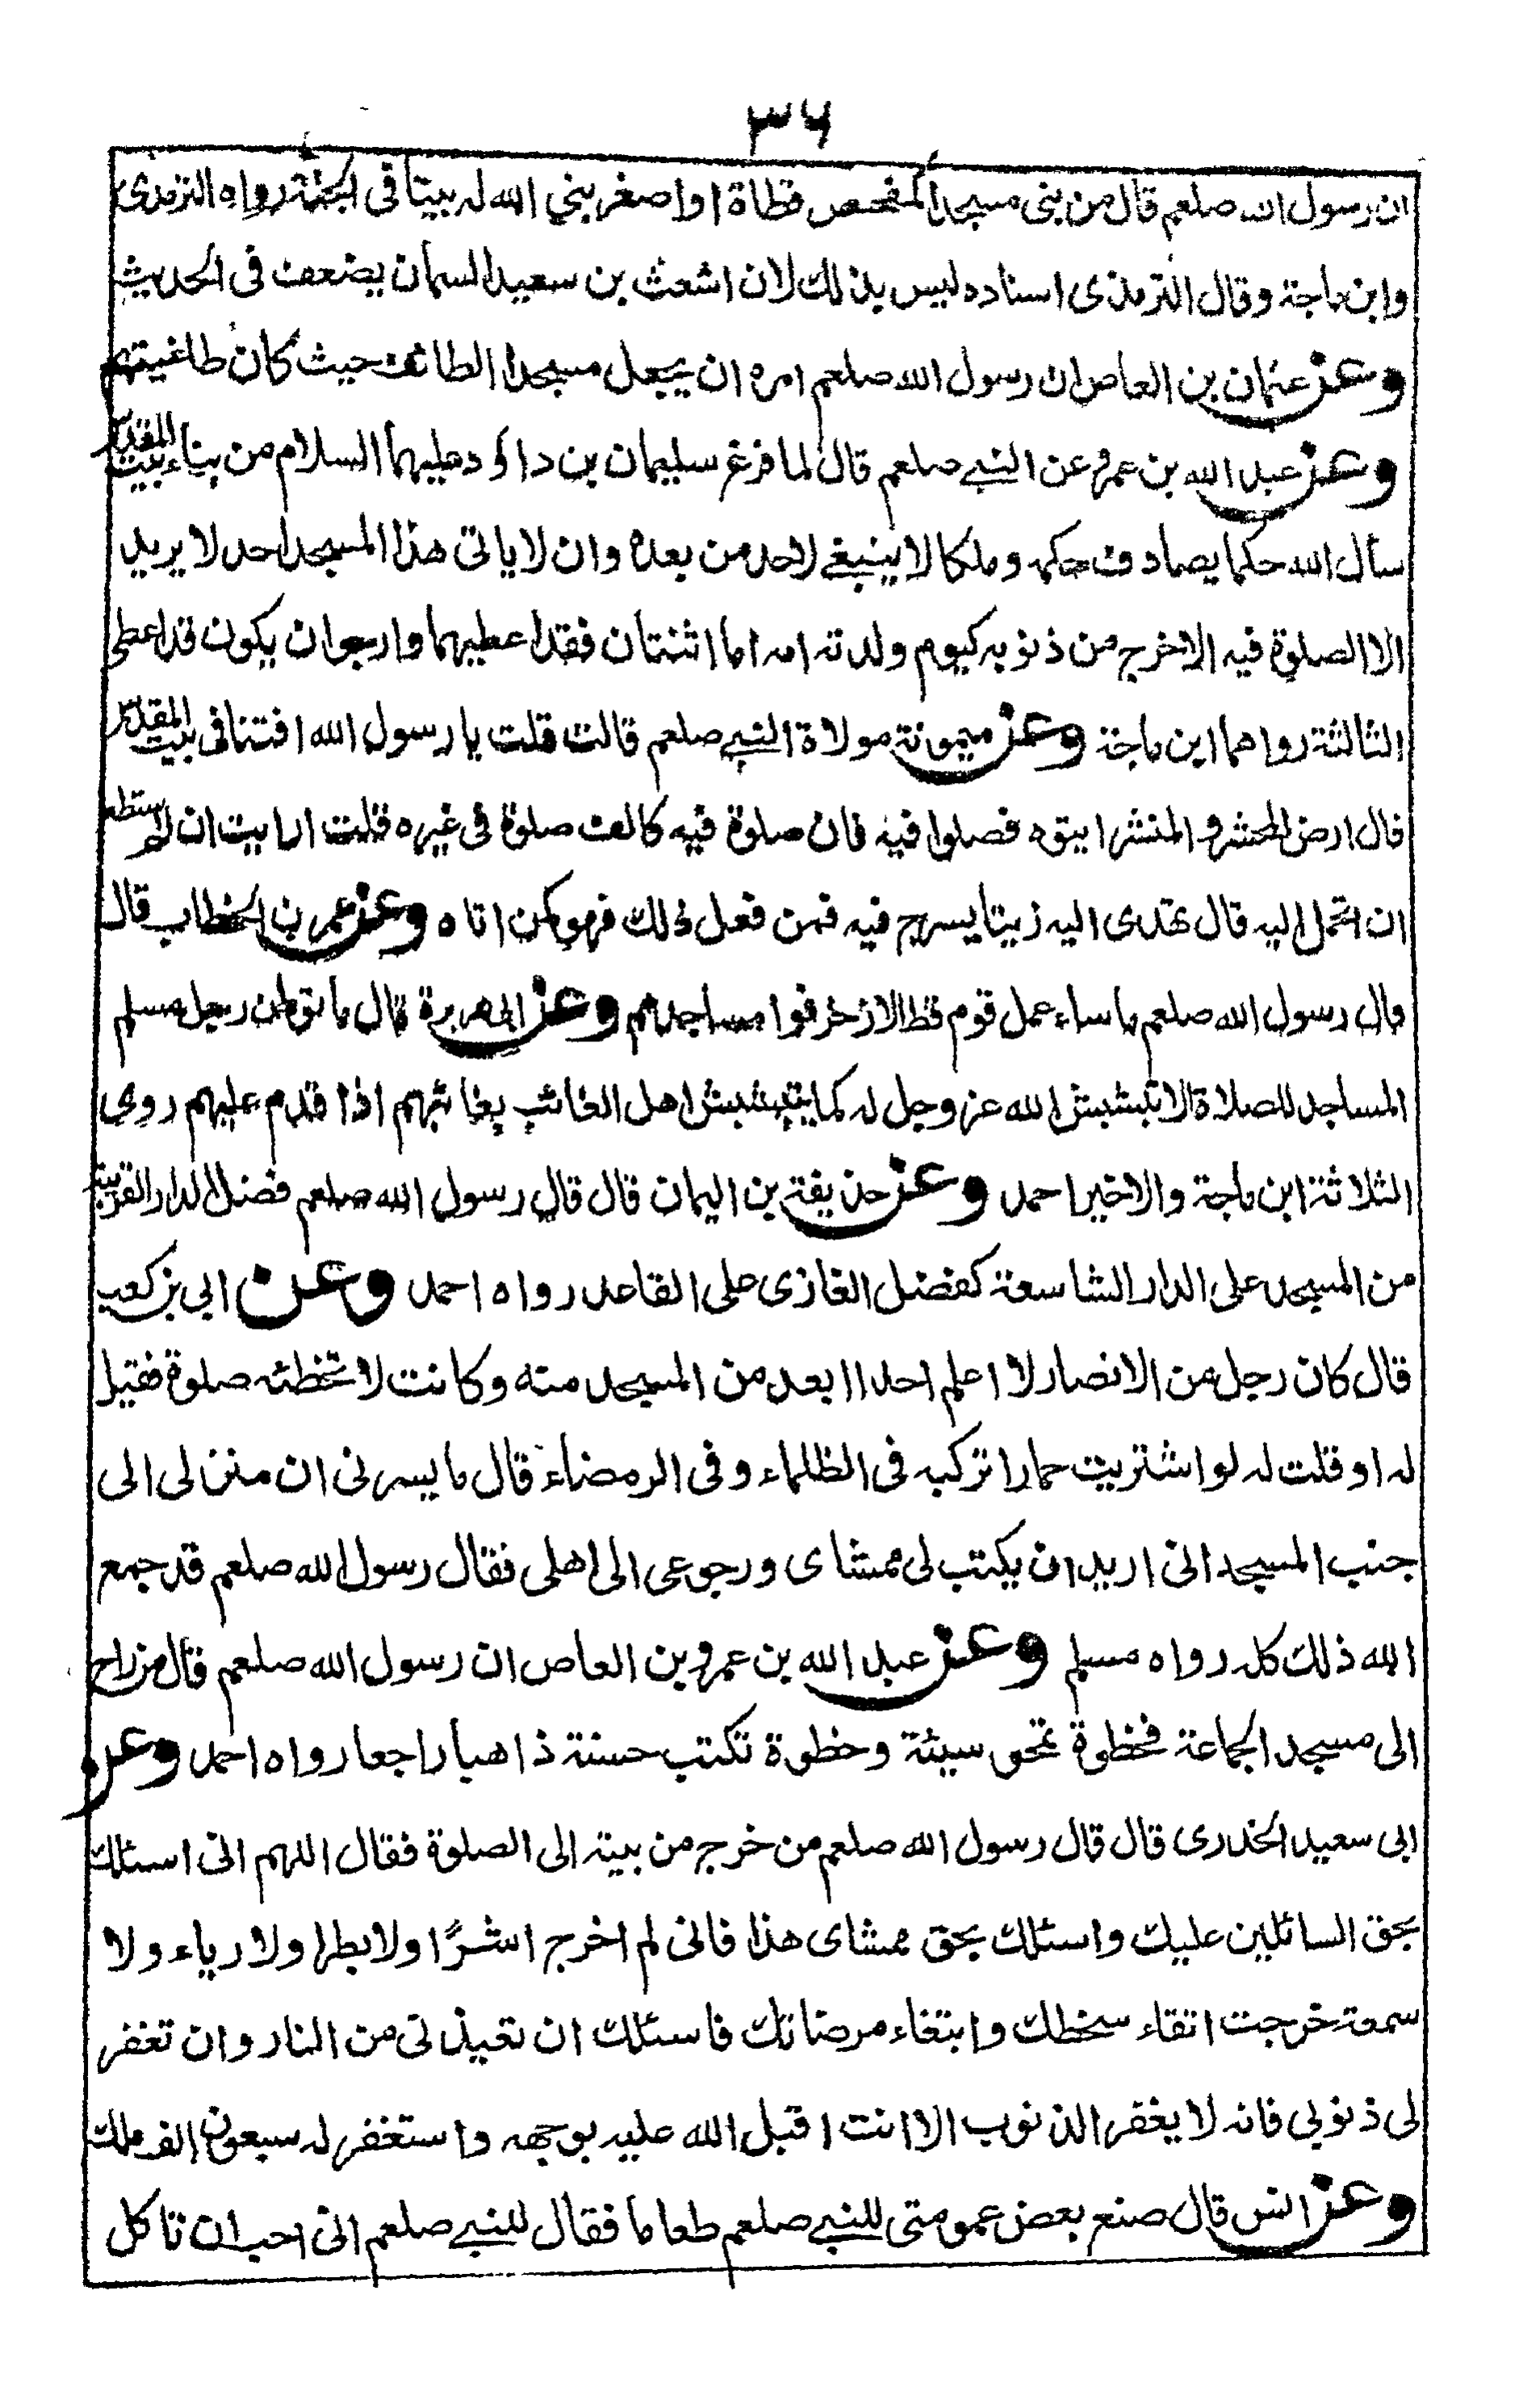 ٣٦
ان رسول الله صلعم قال من بنى مسجدا كمفحص قطاة او اصغر بني الله له بيتا في الجنة رواه الترمذى
وابن ماجة وقال الترمذى اسناده ليس بذلك لان اشعث بن سعيد السمان يضعف فى الحديث
وعن عثمان بن العاص ان رسول الله صلعم امره ان يجعل مسجدا الطائف حيث كان طاغيتهم
وعن عبد الله بن عمرو عن النبي صلعم قال لما فرغ سليمان بن داؤد عليهما السلام من بناء بيت المقدس
سأل الله حكما يصادف حكمه وملكا لا ينبغي لاحد من بعده وان لا ياتى هذا المسجد احد لا يريد
الا الصلوة فيه الا خرج من ذنوبه كيوم ولدته امه اما اثنتان فقد اعطيهما وارجوان يكون قد اعطى
الثالثة رواهما ابن ماجة وعن ميمونة مولاة النبي صلعم قالت قلت يا رسول الله افتنا فى بيت المقدس
قال ارض المحشر و المنشر ايتوه فصلوا فيه فان صلوة فيه كالف صلوة فى غيره قلت ارايت ان لم استطع
ان اتحمل اليه قال تهدى اليه زيتا يسرج فيه فمن فعل ذلك فهو كمن اتاه وعن عمر بن الخطاب قال
قال رسول الله صلعم ما ساء عمل قوم قط الا زخرفوا مساجدهم وعن ابى هريرة قال ما توطن رجل مسلم
المساجد للصلاة الا تبشبش الله عز وجل له كما يتبشبش اهل الغائب بغائبهم اذا قدم عليهم روى
الثلاثة ابن ماجة والاخير احمد وعن حذيفة بن اليمان قال قال رسول الله صلعم فضل الدار القريبة
من المسجد على الدار الشاسعة كفضل الغازى على القاعد رواه احمد وعن ابي بن كعب
قال كان رجل من الانصار لا اعلم احدا ابعد من المسجد منه وكانت لا تخطئه صلوة فقيل
له او قلت له لو اشتريت حمارا تركبه فى الظلماء وفى الرمضاء قال ما يسرنى ان منزلى الى
جنب المسجد انى اريد ان يكتب لى ممشاى ورجوعى الى اهلى فقال رسول الله صلعم قد جمع
الله ذلك كله رواه مسلم وعن عبد الله بن عمرو بن العاص ان رسول الله صلعم قال من راح
الى مسجد الجماعة فخطوة تمحو سيئة وخطوة تكتب حسنة ذاهبا راجعا رواه احمد وعن
ابى سعيد الخدرى قال قال رسول الله صلعم من خرج من بيته الى الصلوة فقال اللهم انى اسئلك
بحق السائلين عليك واسئلك بحق ممشاى هذا فانى لم اخرج اشرًا ولا بطرا ولا رياء ولا
سمعة خرجت اتقاء سخطك وابتغاء مرضاتك فاسئلك ان تعيذنى من النار وان تغفر
لى ذنوبي فانه لا يغفر الذنوب الا انت اقبل الله عليه بوجهه واستغفر له سبعون الف ملك
وعن انس قال صنع بعض عمومتى للنبي صلعم طعاما فقال للنبي صلعم انى احب ان تاكل